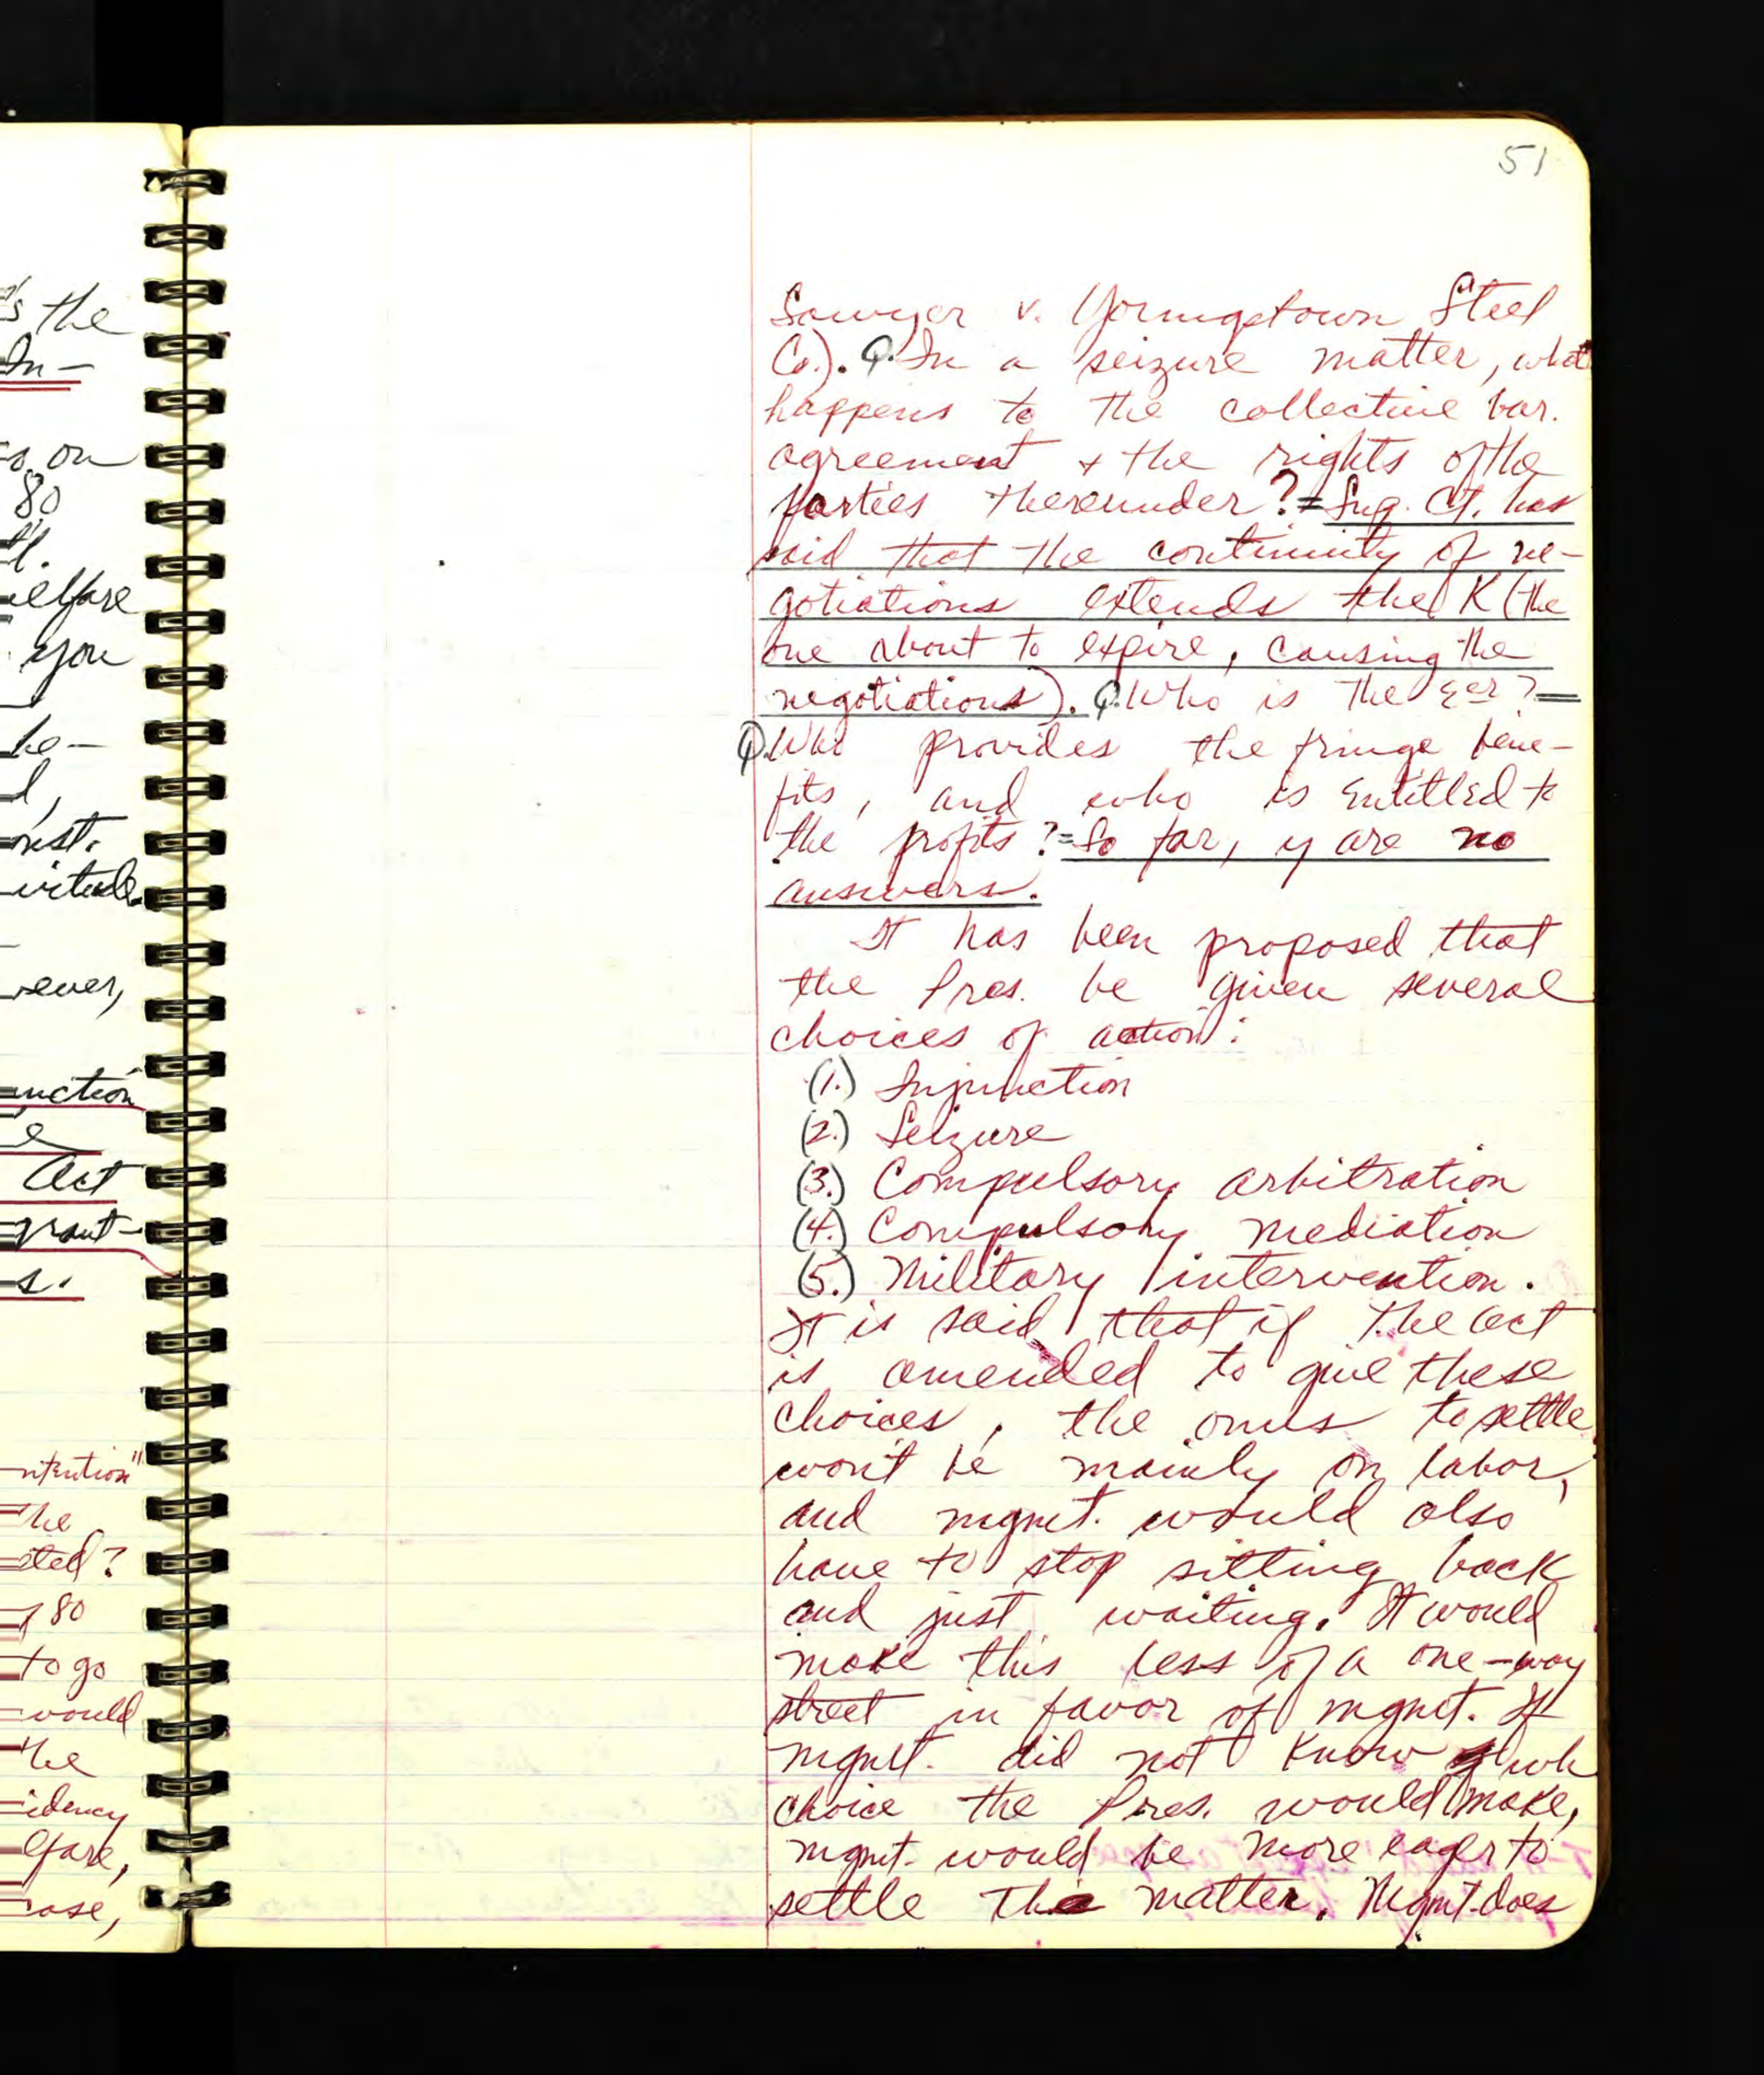 's the
In-
on
80
elfare
you
he-
onst.
ever,
unction
e
Act
grant-
s.
ntention"
he
cted?
80
to go
would
he
idency
lfare,
case,
51
Sawyer v. Youngstown Steel
Co.). Q. In a seizure matter, what
happens to the collective bar.
agreement + the rights of the
parties thereunder? = Sup. Ct. has
said that the continuity of ne-
gotiations extends the K (the
one about to expire, causing the
negotiations). Q. Who is the Eer? =
Q. Who provides the fringe bene-
fits, and who is entitled to
the profits? = So far, y are no
answers.
It has been proposed that
the Pres. be given several
choices of action:
(1.) Injunction
(2.) Seizure
(3.) Compulsory arbitration
(4.) Compulsory mediation
(5.) Military intervention.
It is said that if the act
is amended to give these
choices, the onus to settle
won't be mainly on labor,
and mgmt. would also
have to stop sitting back
and just waiting. It would
make this less of a one-way
street in favor of mgmt. If
mgmt. did not know wh
choice the Pres. would make,
mgmt. would be more eager to
settle the matter. Mgmt. does